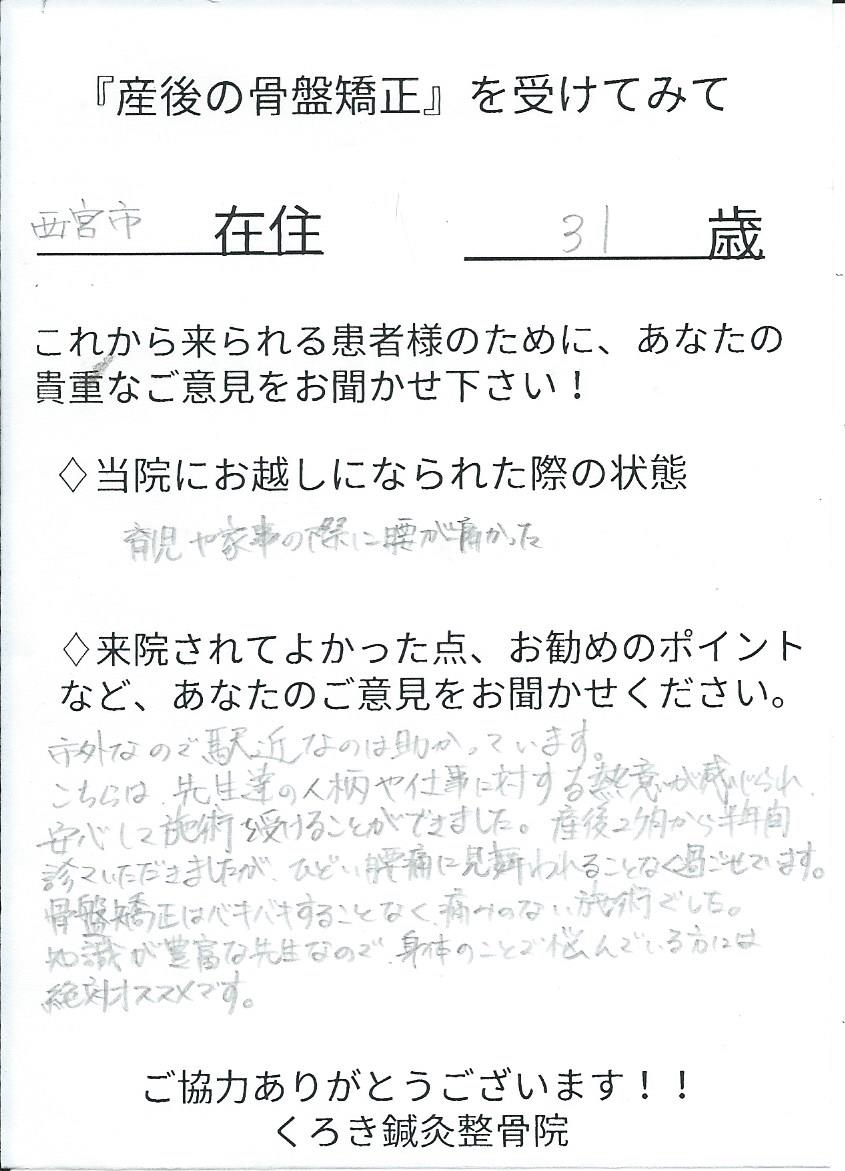 『産後の骨盤矯正』を受けてみて
西宮市 在住 31 歳
これから来られる患者様のために、あなたの
貴重なご意見をお聞かせ下さい！
◇当院にお越しになられた際の状態
育児や家事の際に腰が痛かった
◇来院されてよかった点、お勧めのポイント
など、あなたのご意見をお聞かせください。
市外なので駅近なのは助かっています。
こちらは、先生達の人柄や仕事に対する熱意が感じられ、
安心して施術を受けることができました。産後2ヶ月から半年間
診ていただきましたが、ひどい腰痛に見舞われることなく過ごせています。
骨盤矯正はバキバキすることなく、痛みのない施術でした。
知識が豊富な先生なので、身体のことで悩んでいる方には
絶対オススメです。
ご協力ありがとうございます！！
くろき鍼灸整骨院